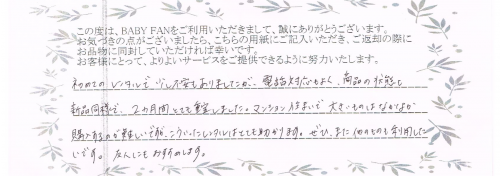 この度は、BABY FANをご利用いただきまして、誠にありがとうございます。
お気づきの点がございましたら、こちらの用紙にご記入いただき、ご返却の際に
お品物に同封していただければ幸いです。
お客様にとって、よりよいサービスをご提供できるように努力いたします。
初めてのレンタルで少し不安もありましたが、電話対応もよく、商品の状態も
新品同様で、2ヵ月間とても重宝しました。マンション住まいで大きいものはなかなか
購入するのが難しいですが、こういったレンタルはとても助かります。ぜひ、また他のものも利用した
いです。友人にもおすすめします。